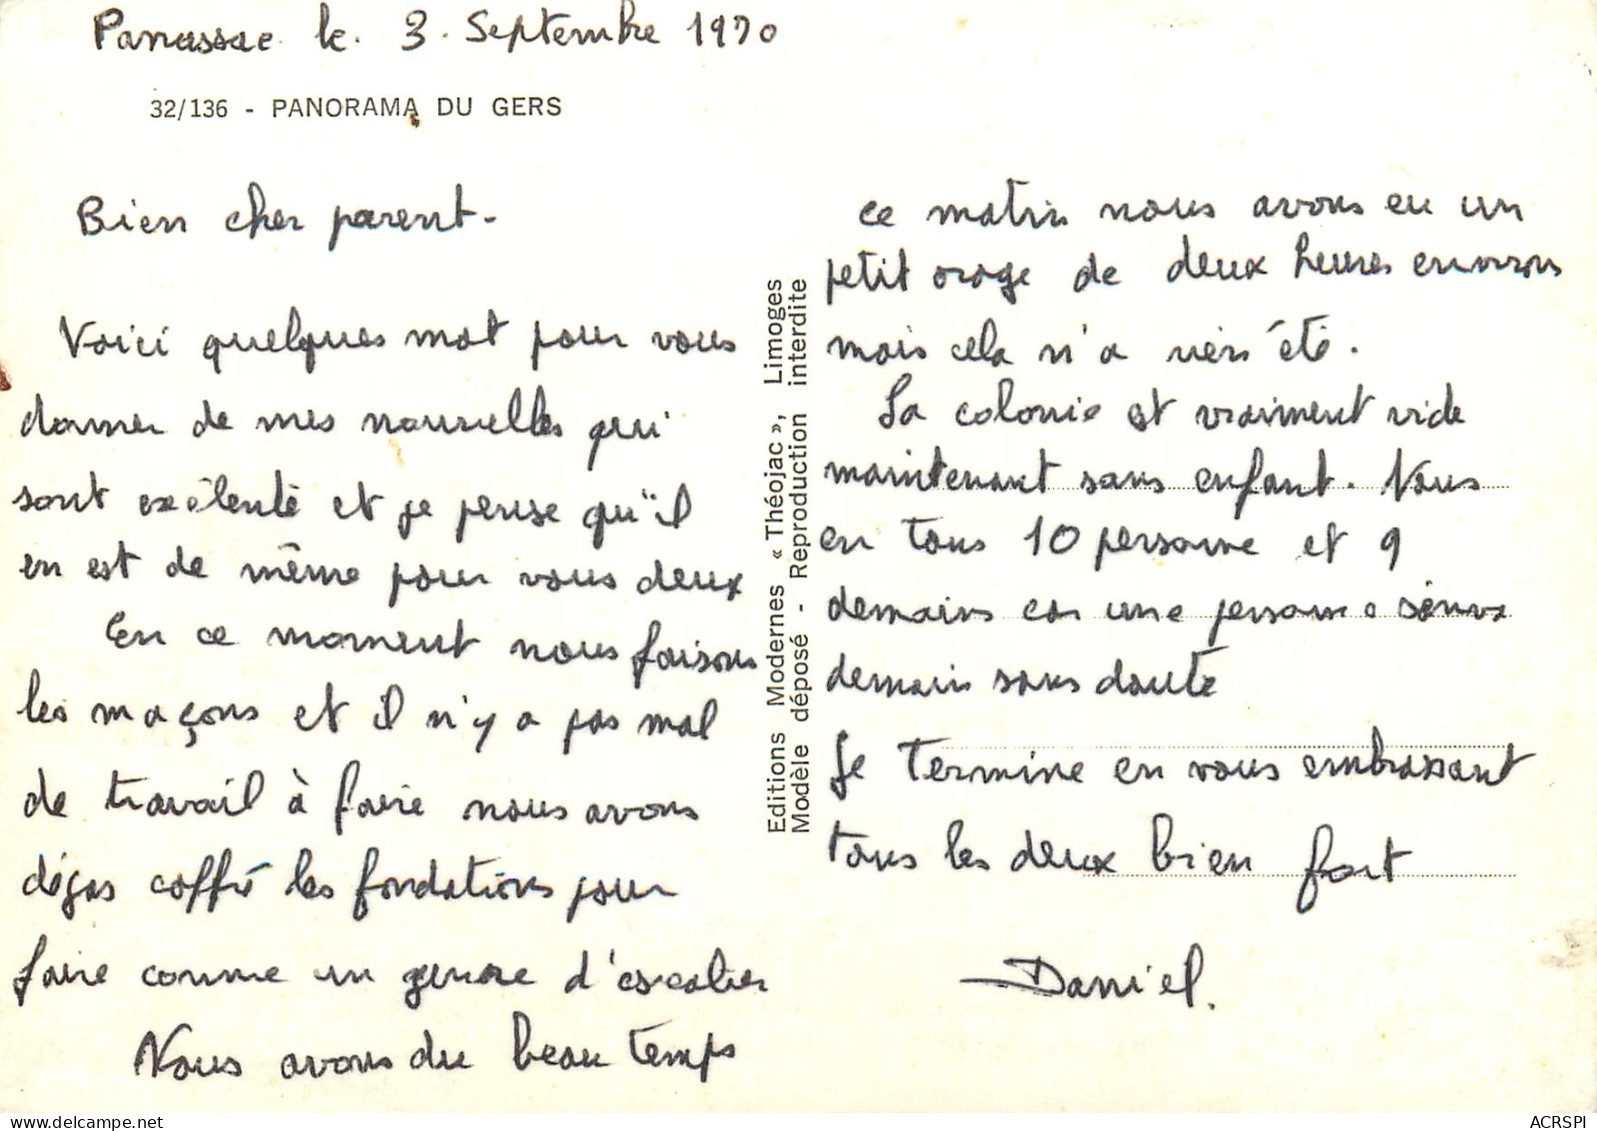 Panassac le. 3. Septembre 1970
32/136 - PANORAMA DU GERS
Bien cher parent-
Voici quelques mot pour vous
donner de mes nouvelles qui
sont exélente et je pense qu'il
en est de même pour vous deux
En ce moment nous faisons
les maçons et il n'y a pas mal
de travail à faire nous avons
déjas coffré les fondations pour
faire comme un genre d'escalier
Nous avons du beau temps
Editions Modernes « Théojac », Limoges
Modèle déposé - Reproduction interdite
ce matin nous avons eu un
petit orage de deux heures environs
mais cela n'a riens été.
La colonie est vraiment vide
maintenant sans enfant. Nous
en tous 10 personne et 9
demains car une personne
demain sans doute
Je termine en vous embrassant
tous les deux bien fort
Daniel.
ACRSPI